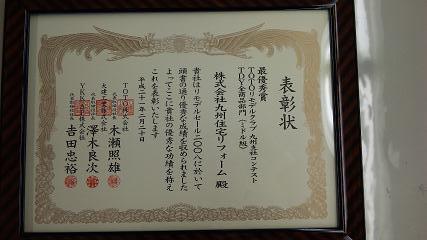 表彰状
最優秀賞
TOTOリモデルクラブ 九州支社コンテスト
TDY全商品部門(ミドル級)
株式会社九州住宅リフォーム 殿
貴社はリモデルセール二〇〇八に於いて
頭書の通り優秀な成績を収められました
よってここに貴社の優秀な功績を称え
これを表彰いたします
平成二十一年二月二十日
TOTO株式会社
木瀬照雄
大建工業株式会社
澤木良次
YKK AP株式会社
吉田忠裕